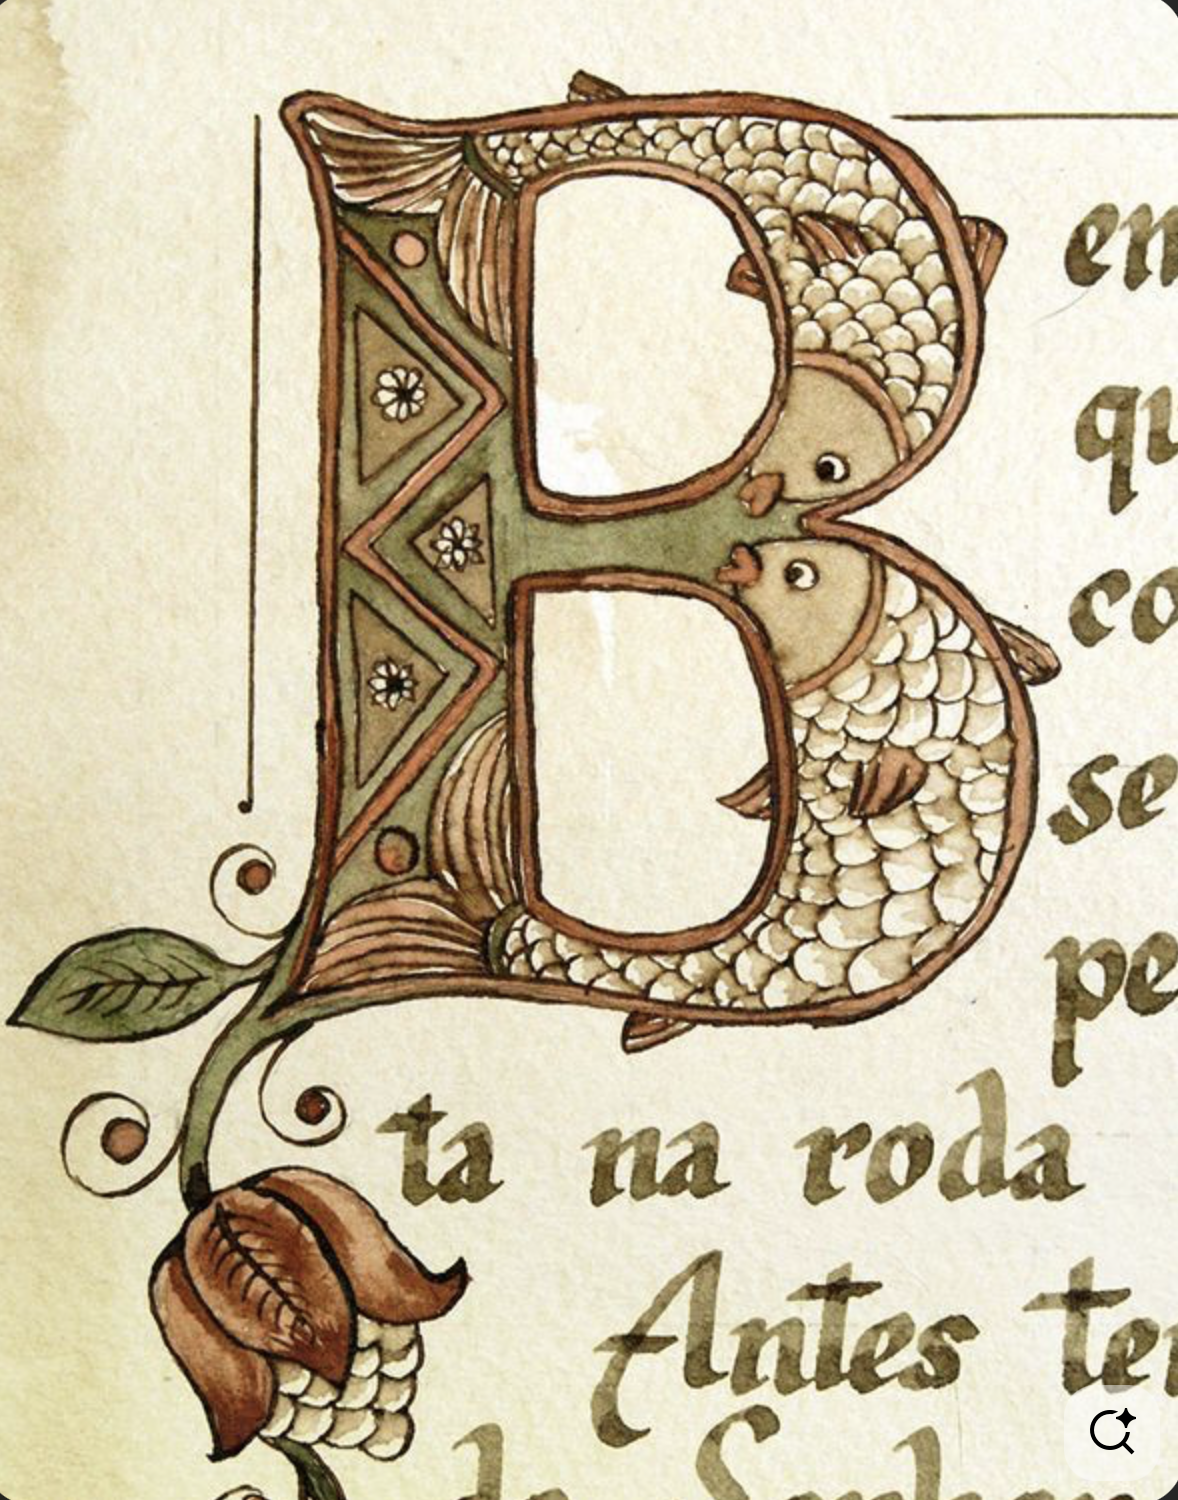 Be
qu
co
se
pe
ta na roda
Antes te